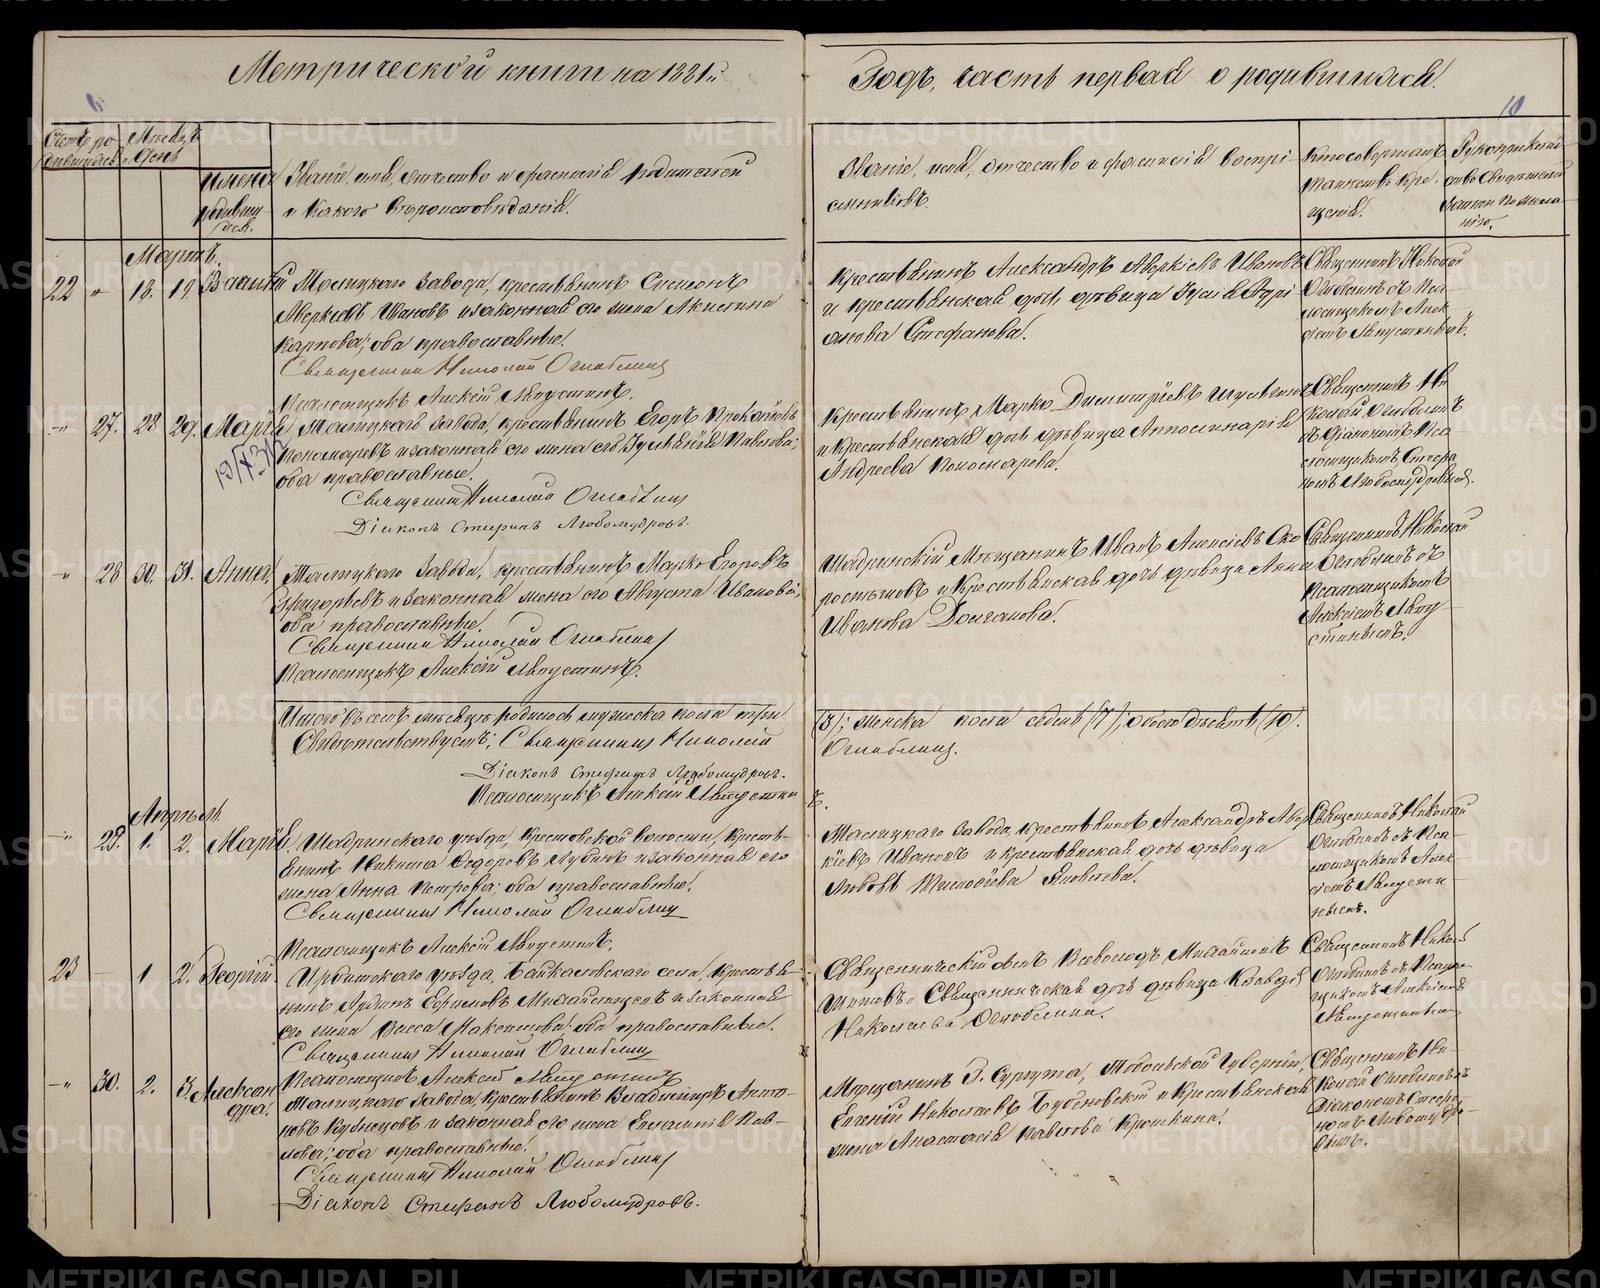 Метрической книги на 1881й
Годъ, часть первая о родившихся.
10
Счетъ ро-
дившихся
Мѣсяцъ
День
Имена
родивш
ихся.
Званіе, имя, отчество и фамилія родителей
и какого вѣроисповѣданія.
Званіе, имя, отчество и фамилія воспрі-
емниковъ.
Кто совершалъ
таинство кре-
щенія.
Рукоприклад-
ство свидѣтелей
записи по жела-
нію.
Мартъ.
22 " 18. 19. Василій
завода, крестьянинъ Симеонъ
Аверкіевъ Ивановъ и законная его жена Акилина
Карпова; оба православные.
Священникъ Николай Оглоблинъ
Псаломщикъ Алексій Августинъ.
Крестьянинъ Александръ Аверкіевъ Ивановъ
и крестьянская дочь дѣвица
Стефанова.
Священникъ Николай
Оглоблинъ съ Пса-
ломщикомъ Алек-
сіемъ Августинымъ.
" 27. 28 29. Марія
завода, крестьянинъ Егоръ Прокопьевъ
Пономаревъ и законная его жена Павлова;
оба православные.
Священникъ Николай Оглоблинъ
Діаконъ Стефанъ Любомудровъ.
Крестьянинъ Марко Димитріевъ
и крестьянская дочь дѣвица Аполлинарія
Андреева Пономарева.
Священникъ Ни-
колай Оглоблинъ
съ Діакономъ
Стефа
номъ Любомудровымъ.
" 28 30. 31. Анна,
завода, крестьянинъ Марко Егоровъ
Григорьевъ и законная жена его Августа Иванова;
оба православные.
Священникъ Николай Оглоблинъ
Псаломщикъ Алексій Августинъ.
Шадринскій Мѣщанинъ Иванъ Алексіевъ
и крестьянская дочь дѣвица Анна
Иванова Долганова.
Священникъ Николай
Оглоблинъ съ
Псаломщикомъ
Алексіемъ Авгу
стинымъ.
Итого въ семъ мѣсяцѣ родилося мужеска пола три
(3); женска пола седмь (7), обоего десять (10).
Свидѣтельствуемъ; Священникъ Николай
Оглоблинъ.
Діаконъ Стефанъ Любомудровъ.
Псаломщикъ Алексій Августин
ъ.
Апрѣль.
" 29. 1. 2. Марія.
Шадринскаго уѣзда, Крестовской волости, кресть-
янинъ Никита Ѳедоровъ и законная его
жена Анна Петрова; оба православные.
Священникъ Николай Оглоблинъ
Псаломщикъ Алексій Августинъ.
завода, крестьянинъ Александръ Авер
кіевъ Ивановъ и крестьянская дочь дѣвица
Любовь Тимоѳеева Яковлева.
Священникъ Николай
Оглоблинъ съ Пса-
ломщикомъ Алек-
сіемъ Августи-
нымъ.
23 — 1 2. Георгій.
Ирбитскаго уѣзда, Байкаловскаго села, крестья-
нинъ Ефимовъ и законная
его жена Васса Максимова; оба православные.
Священникъ Николай Оглоблинъ
Псаломщикъ Алексій Августинъ
Священническій сынъ Всеволодъ Михайловъ
и Священническая дочь дѣвица Клавдія
Николаева Оглоблина.
Священникъ Николай
Оглоблинъ съ Псалом-
щикомъ Алексіемъ
Августинымъ
—" 30. 2. 3. Алексан
дра.
завода, крестьянинъ Владиміръ Анто-
новъ Кузнецовъ и законная его жена Евгенія Пав-
лова; оба православные.
Священникъ Николай Оглоблинъ
Діаконъ Стефанъ Любомудровъ.
Мѣщанинъ Г. Сургута, Тобольской Губерніи,
Евгеній Николаевъ и крестьянская
жена Анастасія Павлова
Священникъ Ни-
колай Оглоблинъ съ
Діакономъ Стефа-
номъ Любомудро-
вымъ.
METRIKI.GASO-URAL.RU